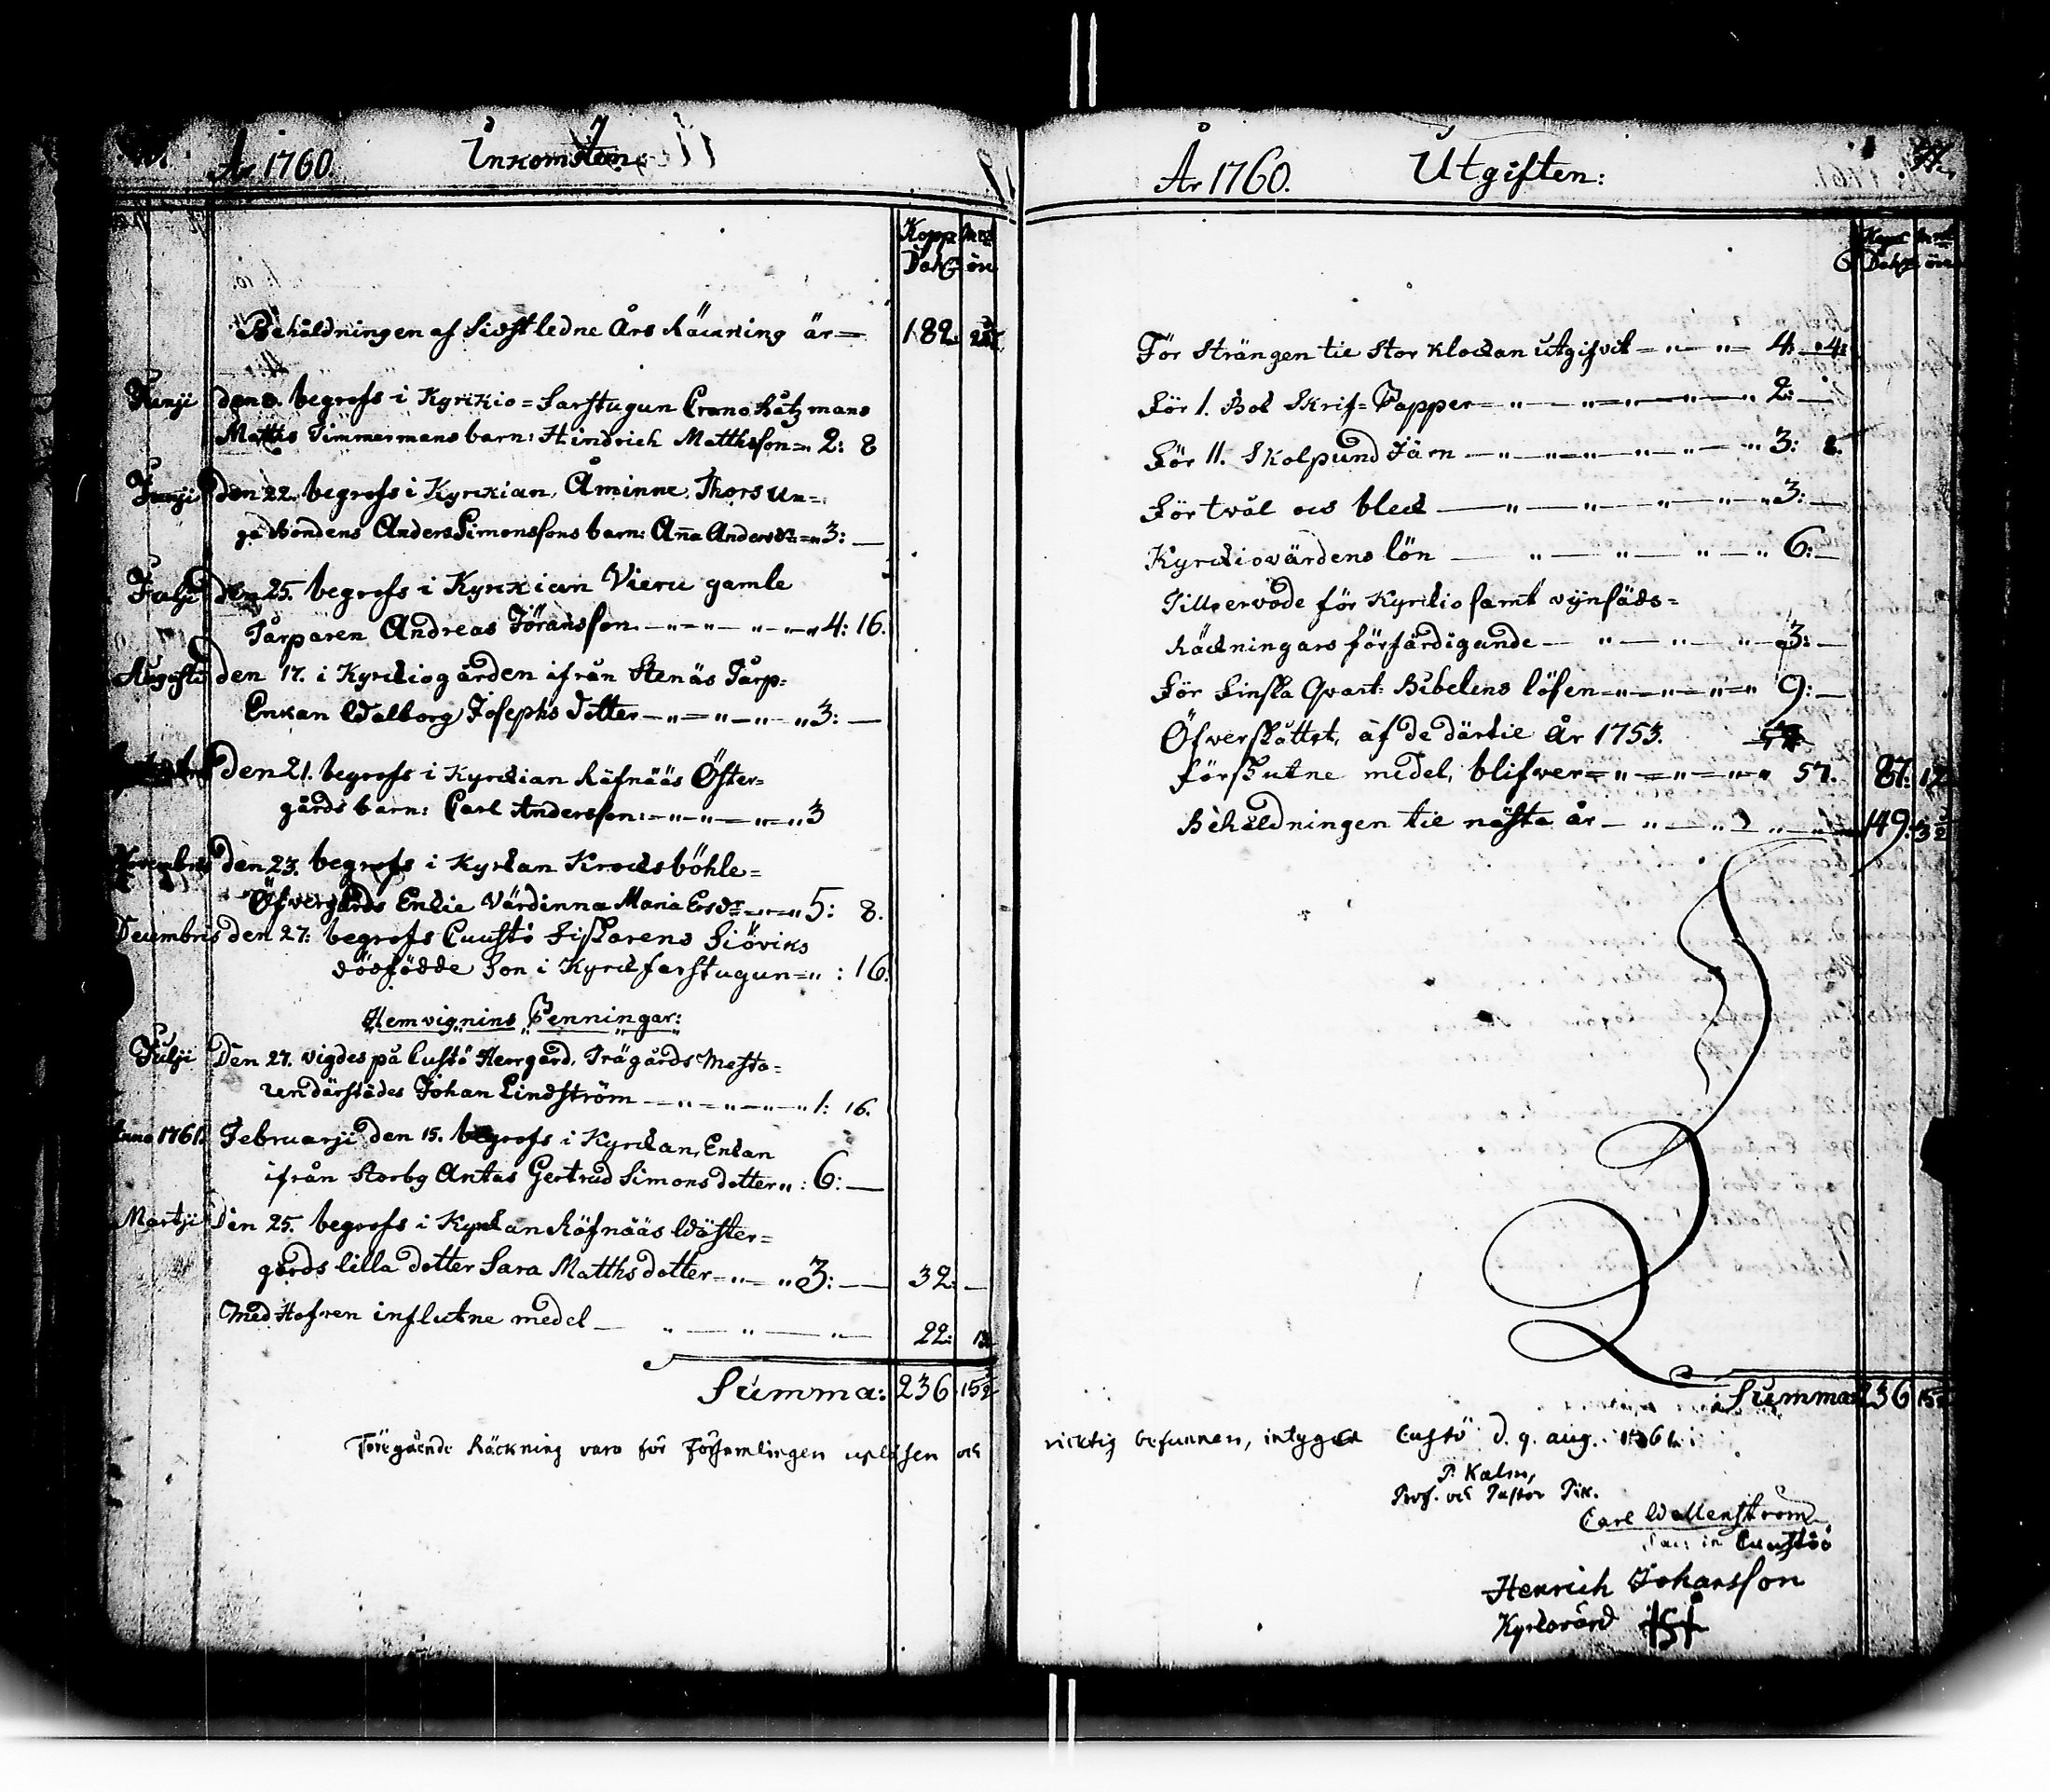 År 1760. Inkomsten:
Kopp Mt
Dahr öre
Behåldningen af Sidstledne Års Räckning är 182.
Junji den begrofs i Kyrckio=Farstugun Crono Båtzmans
Matths Timmermans barn: Hindrich Matthsson 2: 8
Junji den 22. begrofs i Kyrckian, Åminne, Thors un=
ga Bondens Anders Simonssons barn: Aña Andersdr 3: —
Julji den 25. begrofs i Kyrckian Vieru gamle
Tårparen Andreas Jöransson 4: 16.
Augusti den 17. i Kyrckiogården ifrån Stenäs Tårp=
Enkan Walborg Josephs dotter 3: —
den 21. begrofs i Kyrckian Räfnääs Öster=
gårds barn: Carl Andersson: 3
Novembris den 23. begrofs i Kyrckan Krocksböhle=
Öfvergårds Enckie Värdinna Maria Ersdr 5: 8.
Decembris den 27: begrofs Cuustö Fiskarens Siöviks
dödfödde Son i Kyrckfarstugun : 16.
Hemvignins Penningar:
Julji Den 27. vigdes på Custö Herrgård, Trägårds Mesta=
ren därstädes Johan Lindström 1: 16.
Anno 1761. Februarji den 15. begrofs i Kyrckan, Enckan
ifrån Storby Antas Gertrud Simons dotter : 6: —
Martji Den 25. begrofs i Kyrckan Räfnääs Wäster=
gårds lilla dotter Sara Matths dotter 3: — 32: —
Med Hofven influtne medel 22:
Summa: 236 15½
Föregående Räckning vara för Församlingen upläsen och
År 1760. Utgiften:
Dahr öre
För Strängen til Stor Klockan utgifvit 4: 4:
För 1. Bok Skrif=Papper 2: —
För 11. Skolpund Järn 3: 8.
För tvål och bleck 3: —
Kyrckiovärdens lön 6: —
Till arvode för Kyrckio samt vijnsäds=
Räckningars förfärdigande 3: —
För Finska Qvart: Bibelens lösen 9: —
Öfverskåttet, af de därtil År 1753.
förskutne medel, blifwer 57. 87: 12
Behåldningen til nästa år 149: 3½
Summa 236 15½
ricktig befunnen, intygar Custö d. 9. aug. 1761.
P. Kalm,
Prof. och Pastor
Carl Wallenström
Sac: in Cuustöö
Henrich Johansson
Kyrckovärd